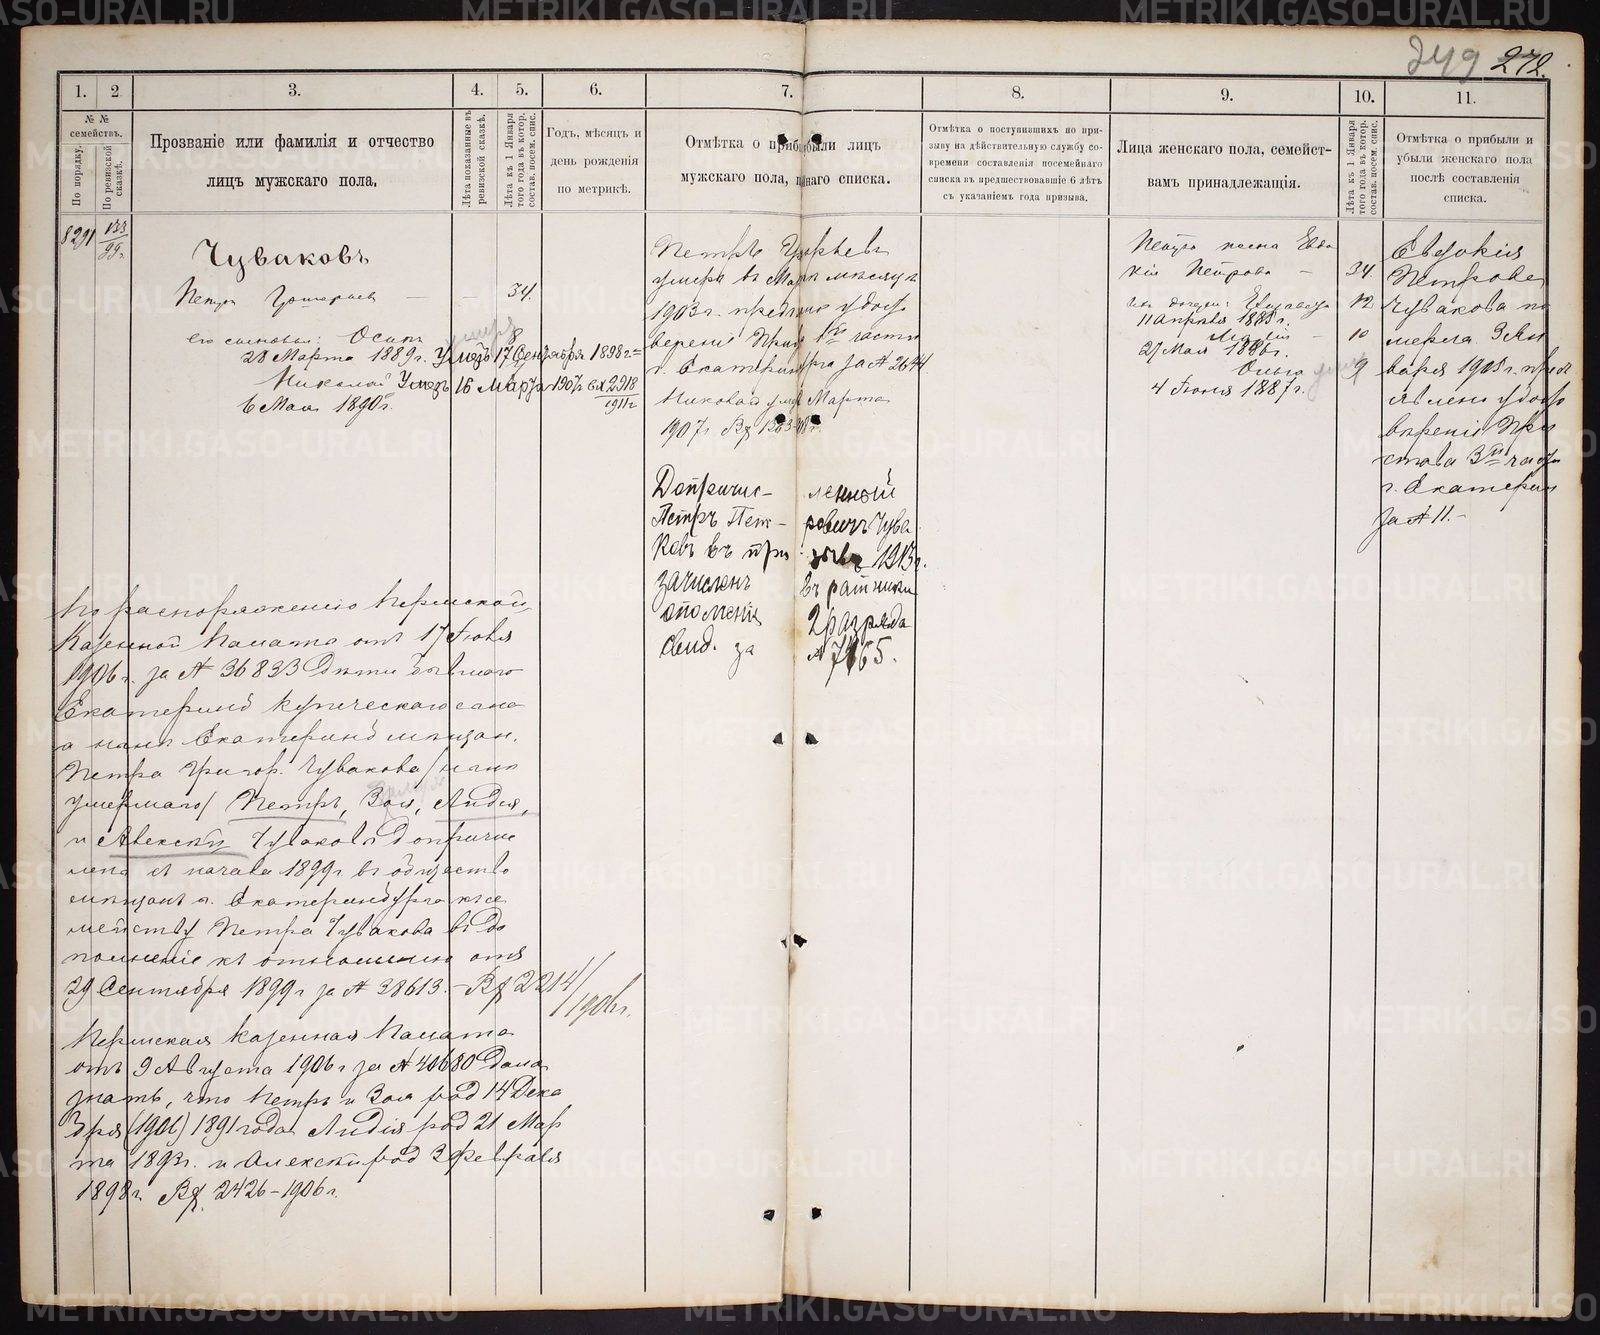 249 272.
1. 2 3. 4. 5. 6. 7. 8. 9. 10. 11.
№ №
семействъ.
По порядку.
По ревизской
сказкѣ.
Прозваніе или фамилія и отчество
лицъ мужскаго пола,
Лѣта показанные въ
ревизской сказкѣ.
Лѣта къ 1 Января
того года въ котор.
состав. посем. спис.
Годъ, мѣсяцъ и
день рожденія
по метрикѣ.
Отмѣтка о прибыли лицъ
мужскаго пола, наго списка.
Отмѣтка о поступившихъ по при-
зыву на дѣйствительную службу со-
времени составленія посемейнаго
списка въ предшествовавшіе 6 лѣтъ
съ указаніемъ года призыва.
Лица женскаго пола, семейст-
вамъ принадлежащія.
Лѣта къ 1 Января
того года въ котор.
состав. посем. спис.
Отмѣтка о прибыли и
убыли женскаго пола
послѣ составленія
списка.
8291 133
99г.
Чуваковъ
Петръ Григорьев — — 34.
его сыновья: Осипъ 8
28 Марта 1889г. Умеръ 17 Сентября 1898г.
Николай Умеръ 16 Марта 1907г вх 2918
1911г
6 Мая 1890г.
По распоряженію Пермской
Казенной Палаты отъ 17 Іюля
1906г. за № 36833 дѣти бывшаго
Екатеринб купеческаго сына
а нынѣ Екатеринб мѣщан.
Петра Григор. Чувакова /нынѣ
умершаго/ Петръ, Зоя, Лидія,
и Алексѣй Чуваковы причис
лены съ начала 1899г въ общество
мѣщанъ г. Екатеринбурга къ се
мейству Петра Чувакова въ до
полненіе къ отношенію отъ
29 Сентября 1899г за № 38613. — Вх 2214/
1906г.
Пермская Казенная Палата
отъ 9 Августа 1906г за № 40680 дала
знать, что Петръ и Зоя род 14 Дека
бря (1906) 1891 года Лидія род 21 Мар
та 1893г. и Алексѣй род 3 Февраля
1898г. Вх. 2426–1906г.
Петръ Григорьевъ
умеръ въ Мартѣ мѣсяцѣ
1903г. предъявлено удосто
вереніе Прист 1й части
г. Екатеринбурга за № 2644
Николай умеръ Марта
1907г Вх
Допричис- ленный
Петръ Пет- ровичъ Чува
ковъ въ при- зывъ 1913г.
зачисленъ въ ратники
ополченія 2 разряда
Свид. за № 7165.
Петра жена Евдо
кія Петрова — 34.
ихъ дочери: Елизавета 12
11 Апрѣля 1885г.
Лидія — 10
27 Мая 1886г.
Ольга 9
4 Іюня 1887г.
Евдокія
Петрова
Чувакова по
мерла 3 Ян
варя 1905г. предъ
явлено удосто
вѣреніе При
става 3й части
г. Екатерин
за № 11.—
METRIKI.GASO-URAL.RU